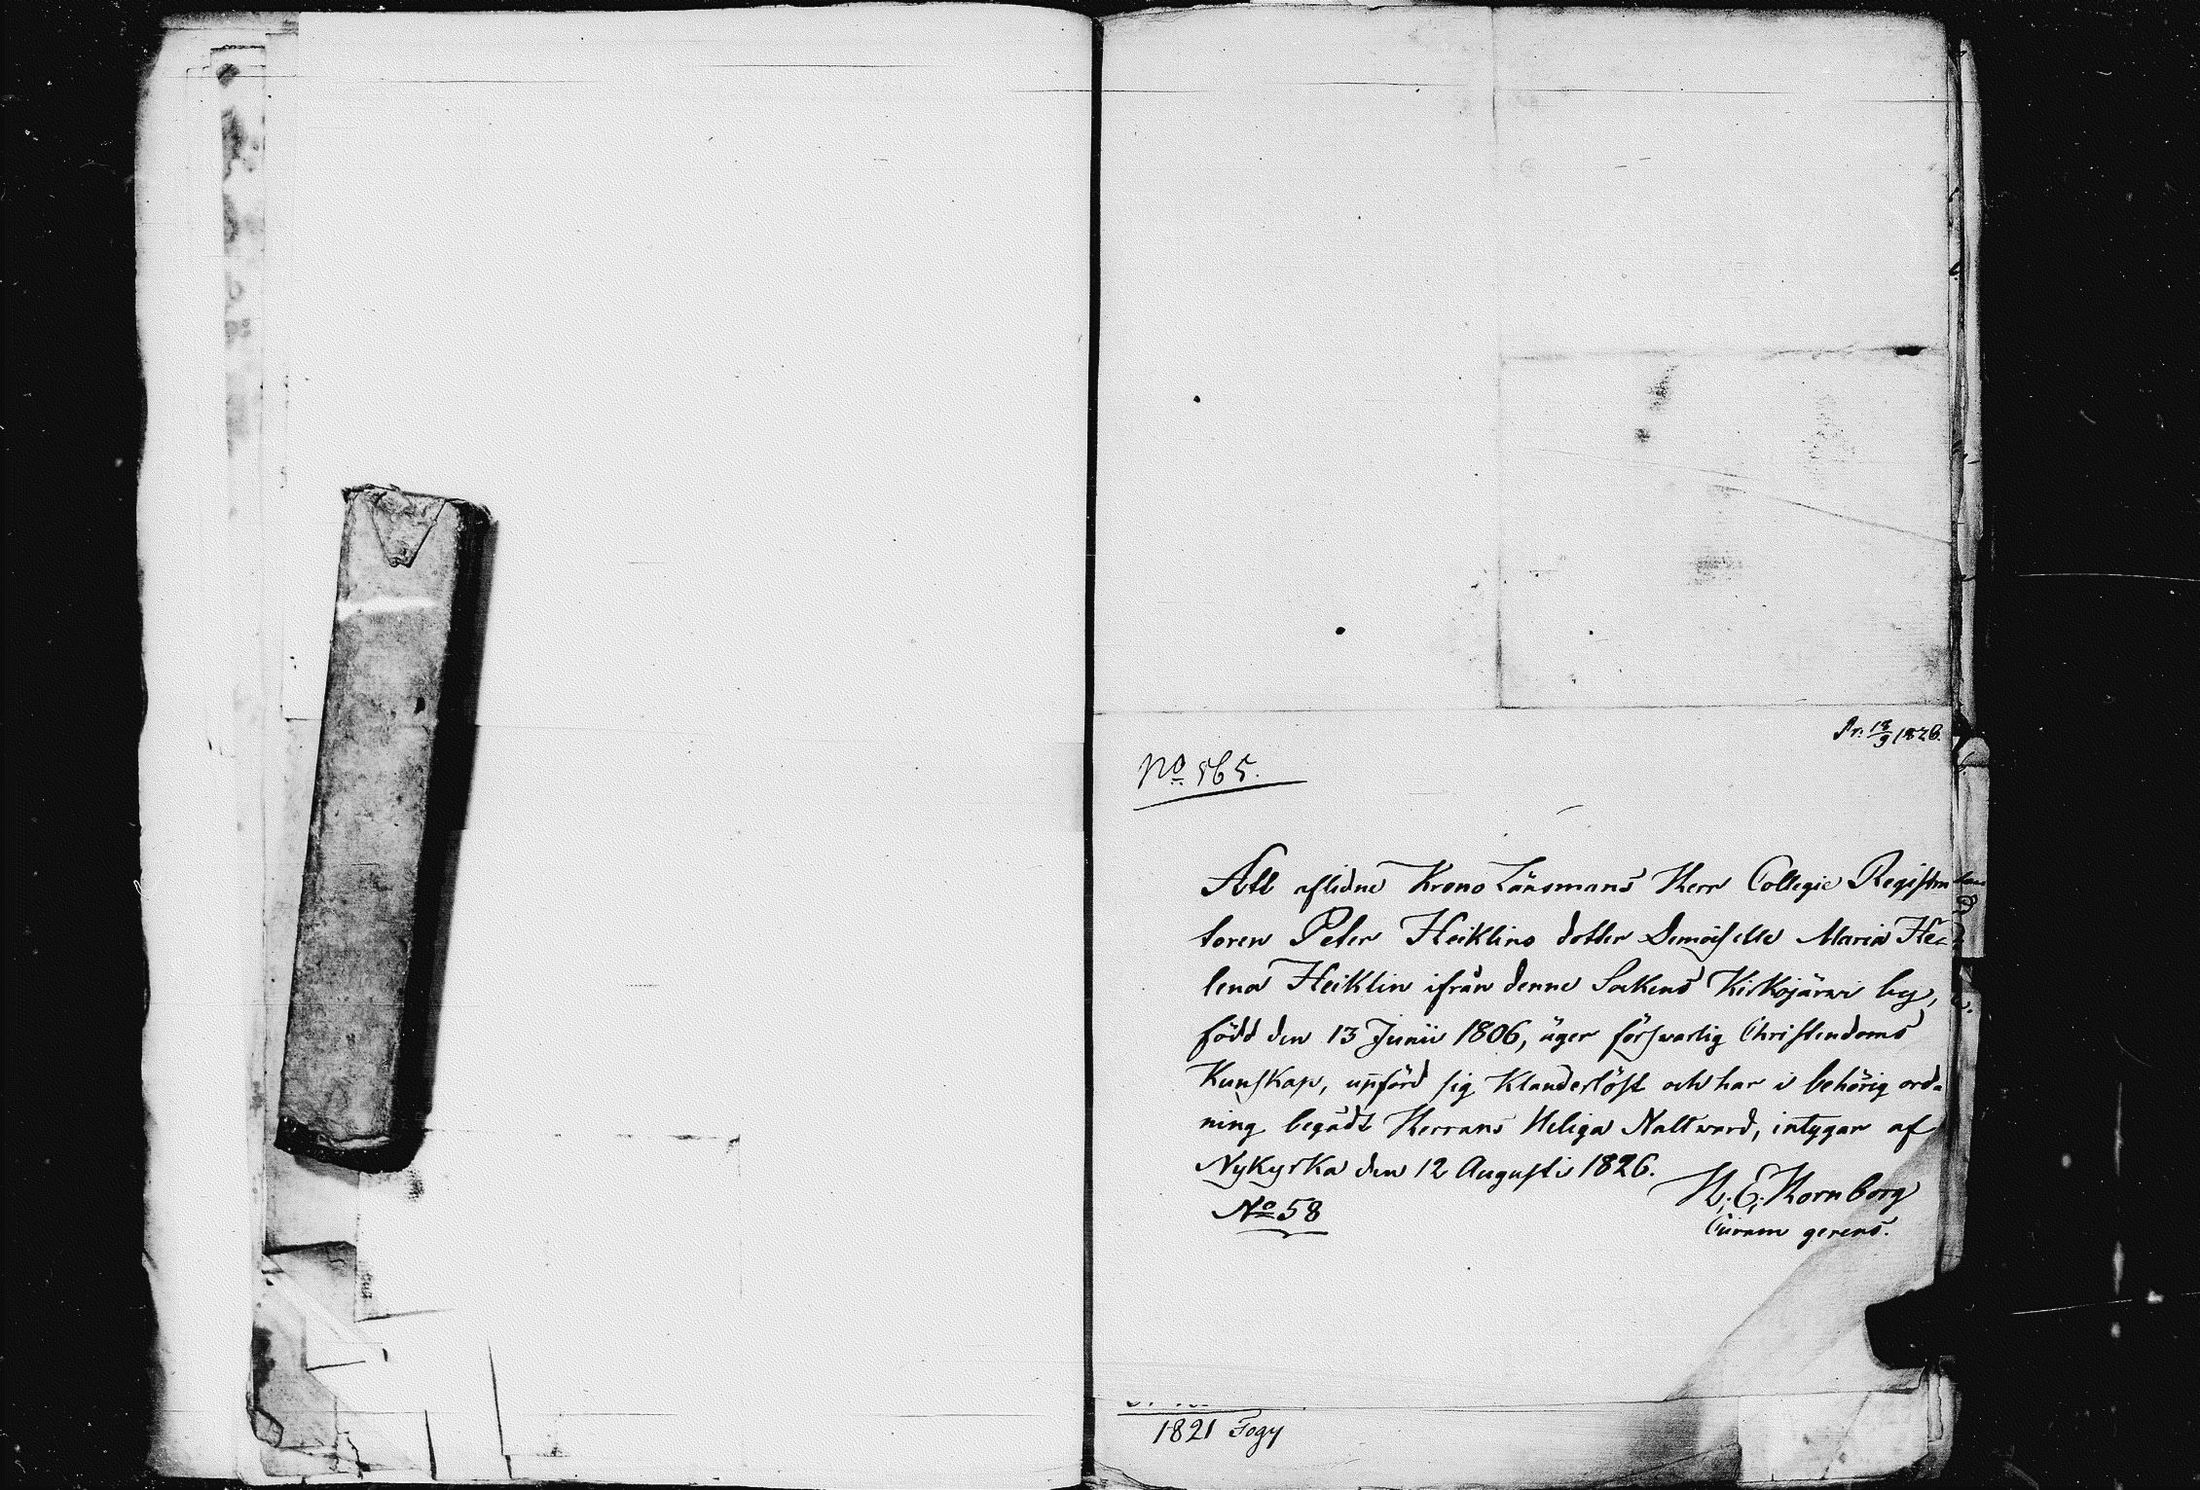 Pr: 18/9 1826.
No 565.
Att aflidne Krono Länsmans Herr Collegie Registra
toren Peter Heiklins dotter Demoiselle Maria He=
lena Heiklin ifrån denne Sockens Kirkojärwi by,
född den 13 Junii 1806, äger förswarlig Christendoms
Kunskap, upförd sig Klanderlöst och har i behörig ord=
ning begådt Herrans Heliga Nattward, intygar af
Nykyrka den 12 Augusti 1826.
H. E. Hornborg
Curam gerens.
No 58
1821